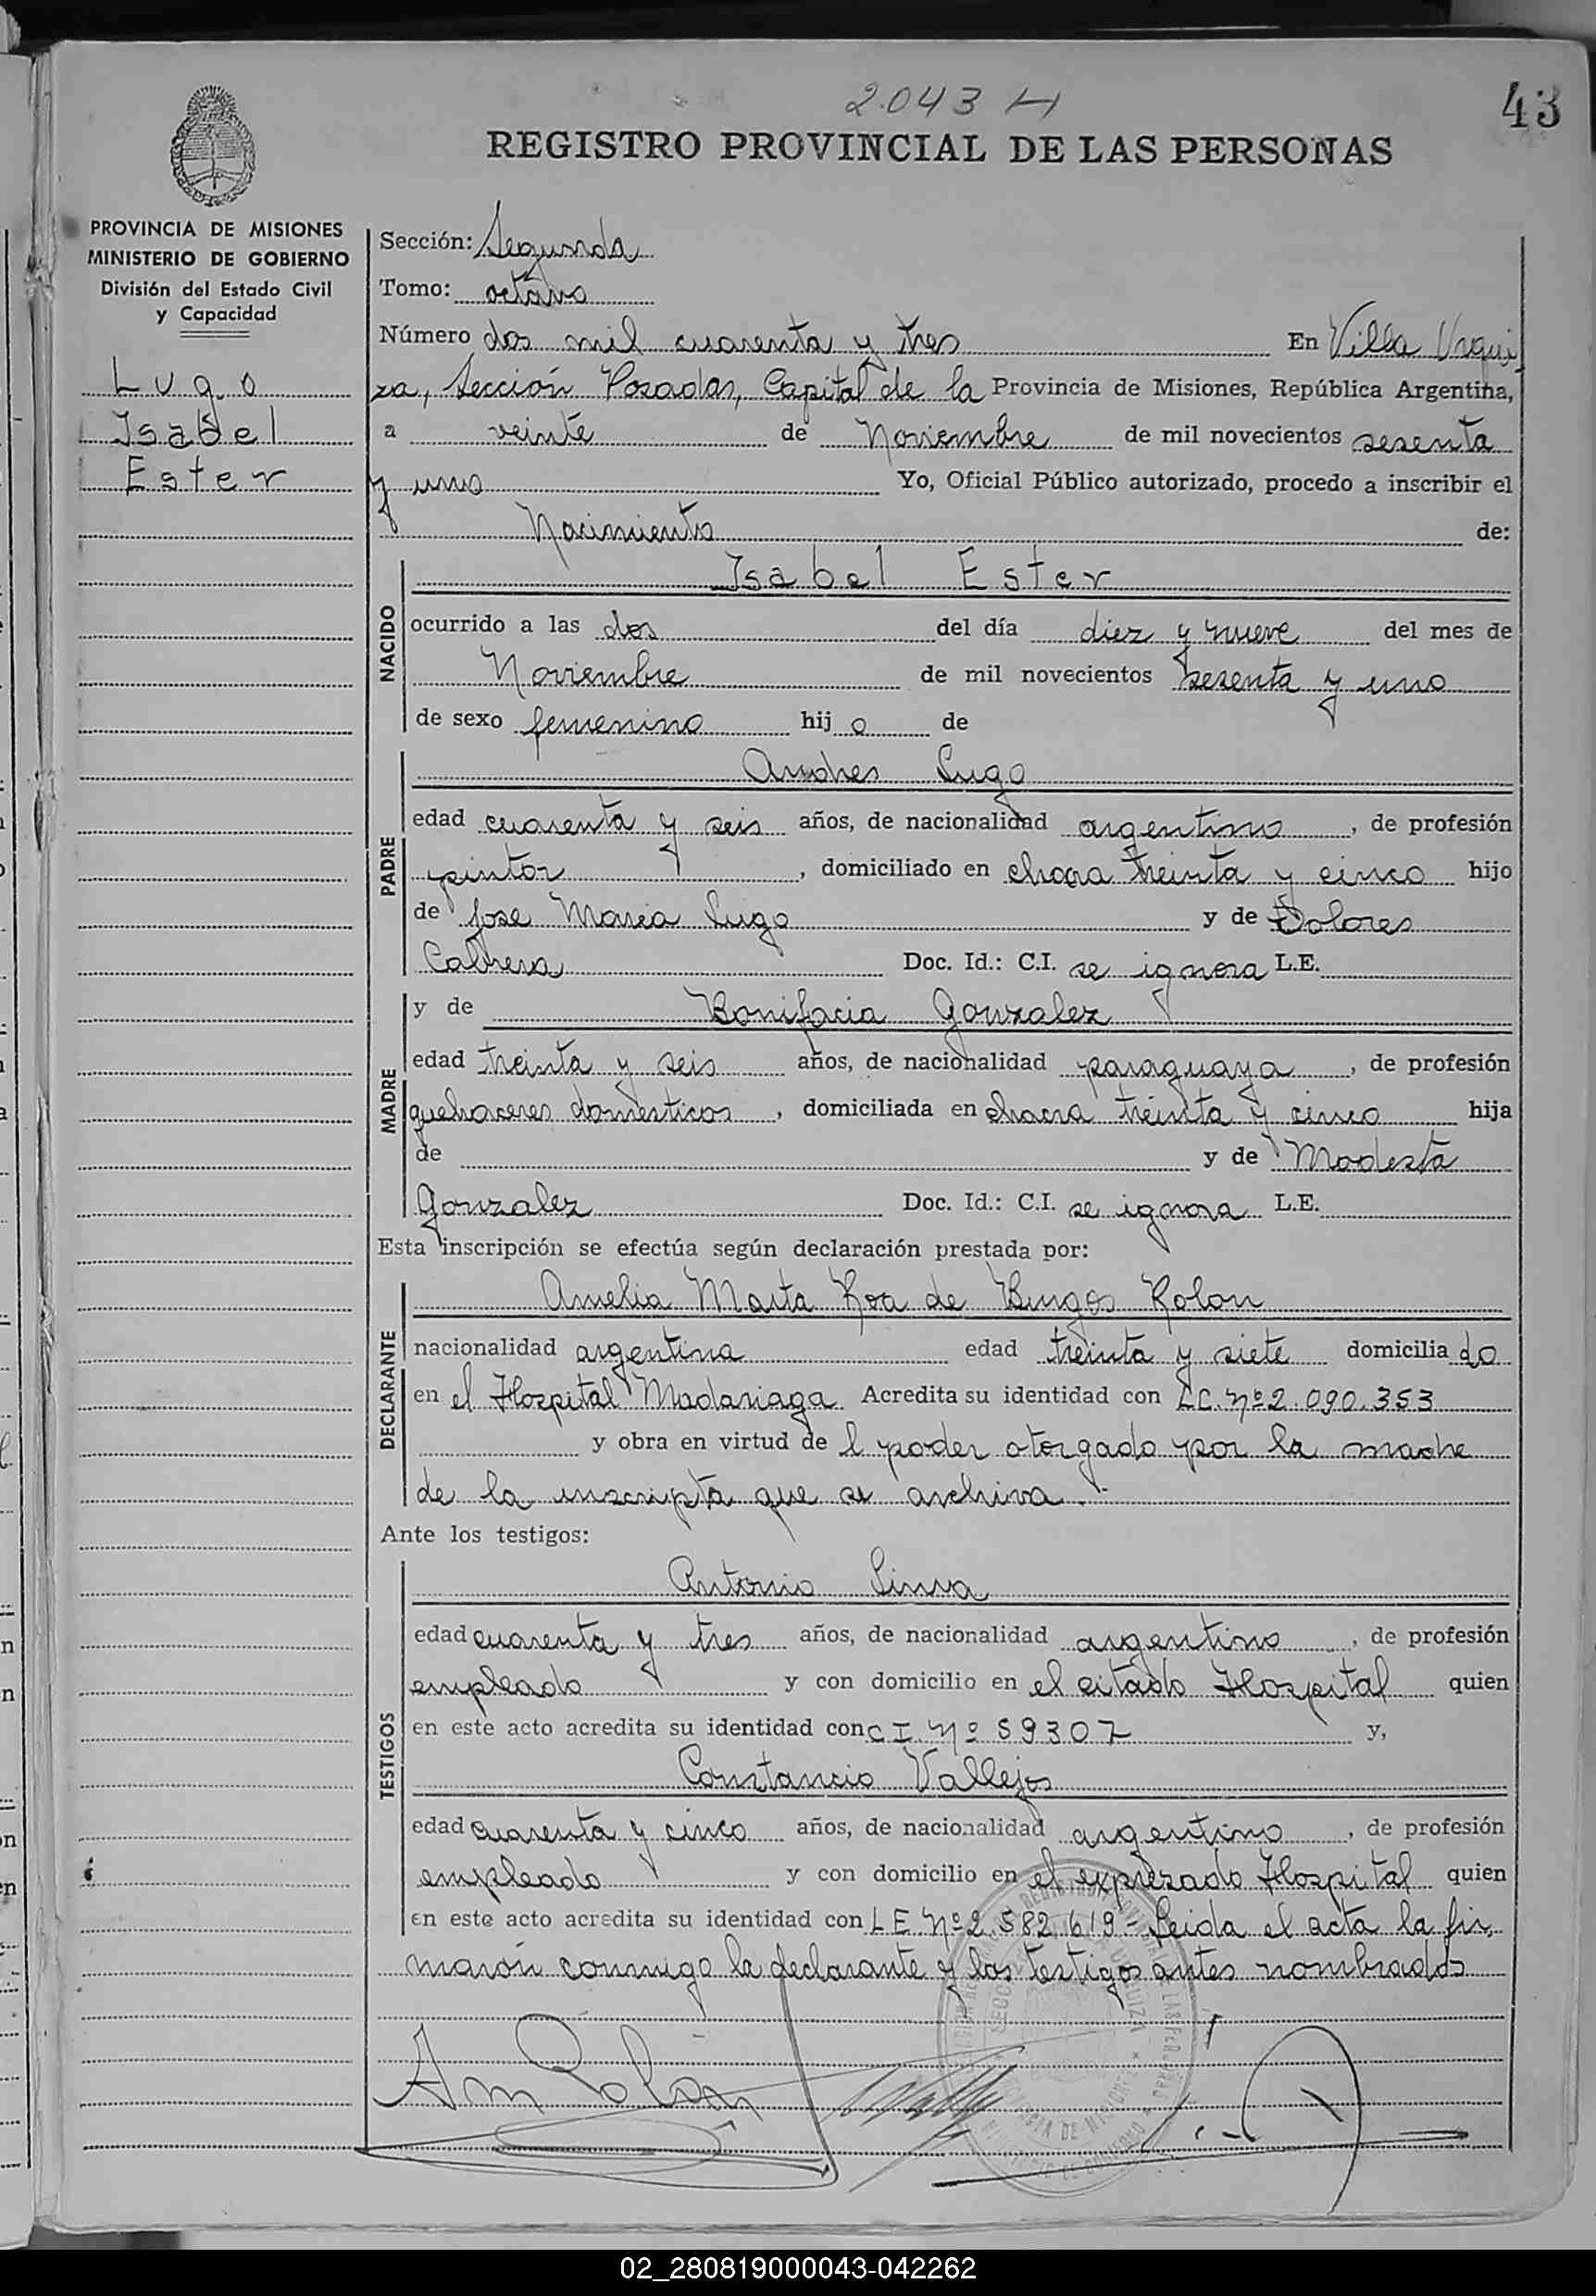 2043 H
43
REGISTRO PROVINCIAL DE LAS PERSONAS
PROVINCIA DE MISIONES
MINISTERIO DE GOBIERNO
División del Estado Civil
y Capacidad
Lugo
Isabel
Ester
Sección: Segunda
Tomo: octavo
Número dos mil cuarenta y tres En Villa Urqui
za, Sección Posadas, Capital de la Provincia de Misiones, República Argentina,
a veinte de Noviembre de mil novecientos sesenta
y uno Yo, Oficial Público autorizado, procedo a inscribir el
Nacimiento de:
NACIDO
Isabel Ester
ocurrido a las dos del día diez y nueve del mes de
Noviembre de mil novecientos sesenta y uno
de sexo femenino hij a de
PADRE
Andres Lugo
edad cuarenta y seis años, de nacionalidad argentino, de profesión
pintor, domiciliado en chacra treinta y cinco hijo
de Jose Maria Lugo y de Dolores
Cabrera Doc. Id.: C.I. se ignora L.E.
MADRE
y de Bonifacia Gonzalez
edad treinta y seis años, de nacionalidad paraguaya, de profesión
quehaceres domesticos, domiciliada en chacra treinta y cinco hija
de y de Modesta
Gonzalez Doc. Id.: C.I. se ignora L.E.
Esta inscripción se efectúa según declaración prestada por:
DECLARANTE
Amelia Marta Roa de Burgos Rolon
nacionalidad argentina edad treinta y siete domicilia do
en el Hospital Madariaga. Acredita su identidad con LC. Nº 2.090.353
y obra en virtud de l poder otorgado por la madre
de la inscripta que se archiva.-
Ante los testigos:
TESTIGOS
Antonio
edad cuarenta y tres años, de nacionalidad argentino, de profesión
empleado y con domicilio en el citado Hospital quien
en este acto acredita su identidad con C I. Nº 59307 y,
Constancio Vallejos
edad cuarenta y cinco años, de nacionalidad argentino, de profesión
empleado y con domicilio en el expresado Hospital quien
en este acto acredita su identidad con L E. Nº 2.582.619- Leida el acta la fir
maron conmigo la declarante y los testigos antes nombrados
02_280819000043-042262